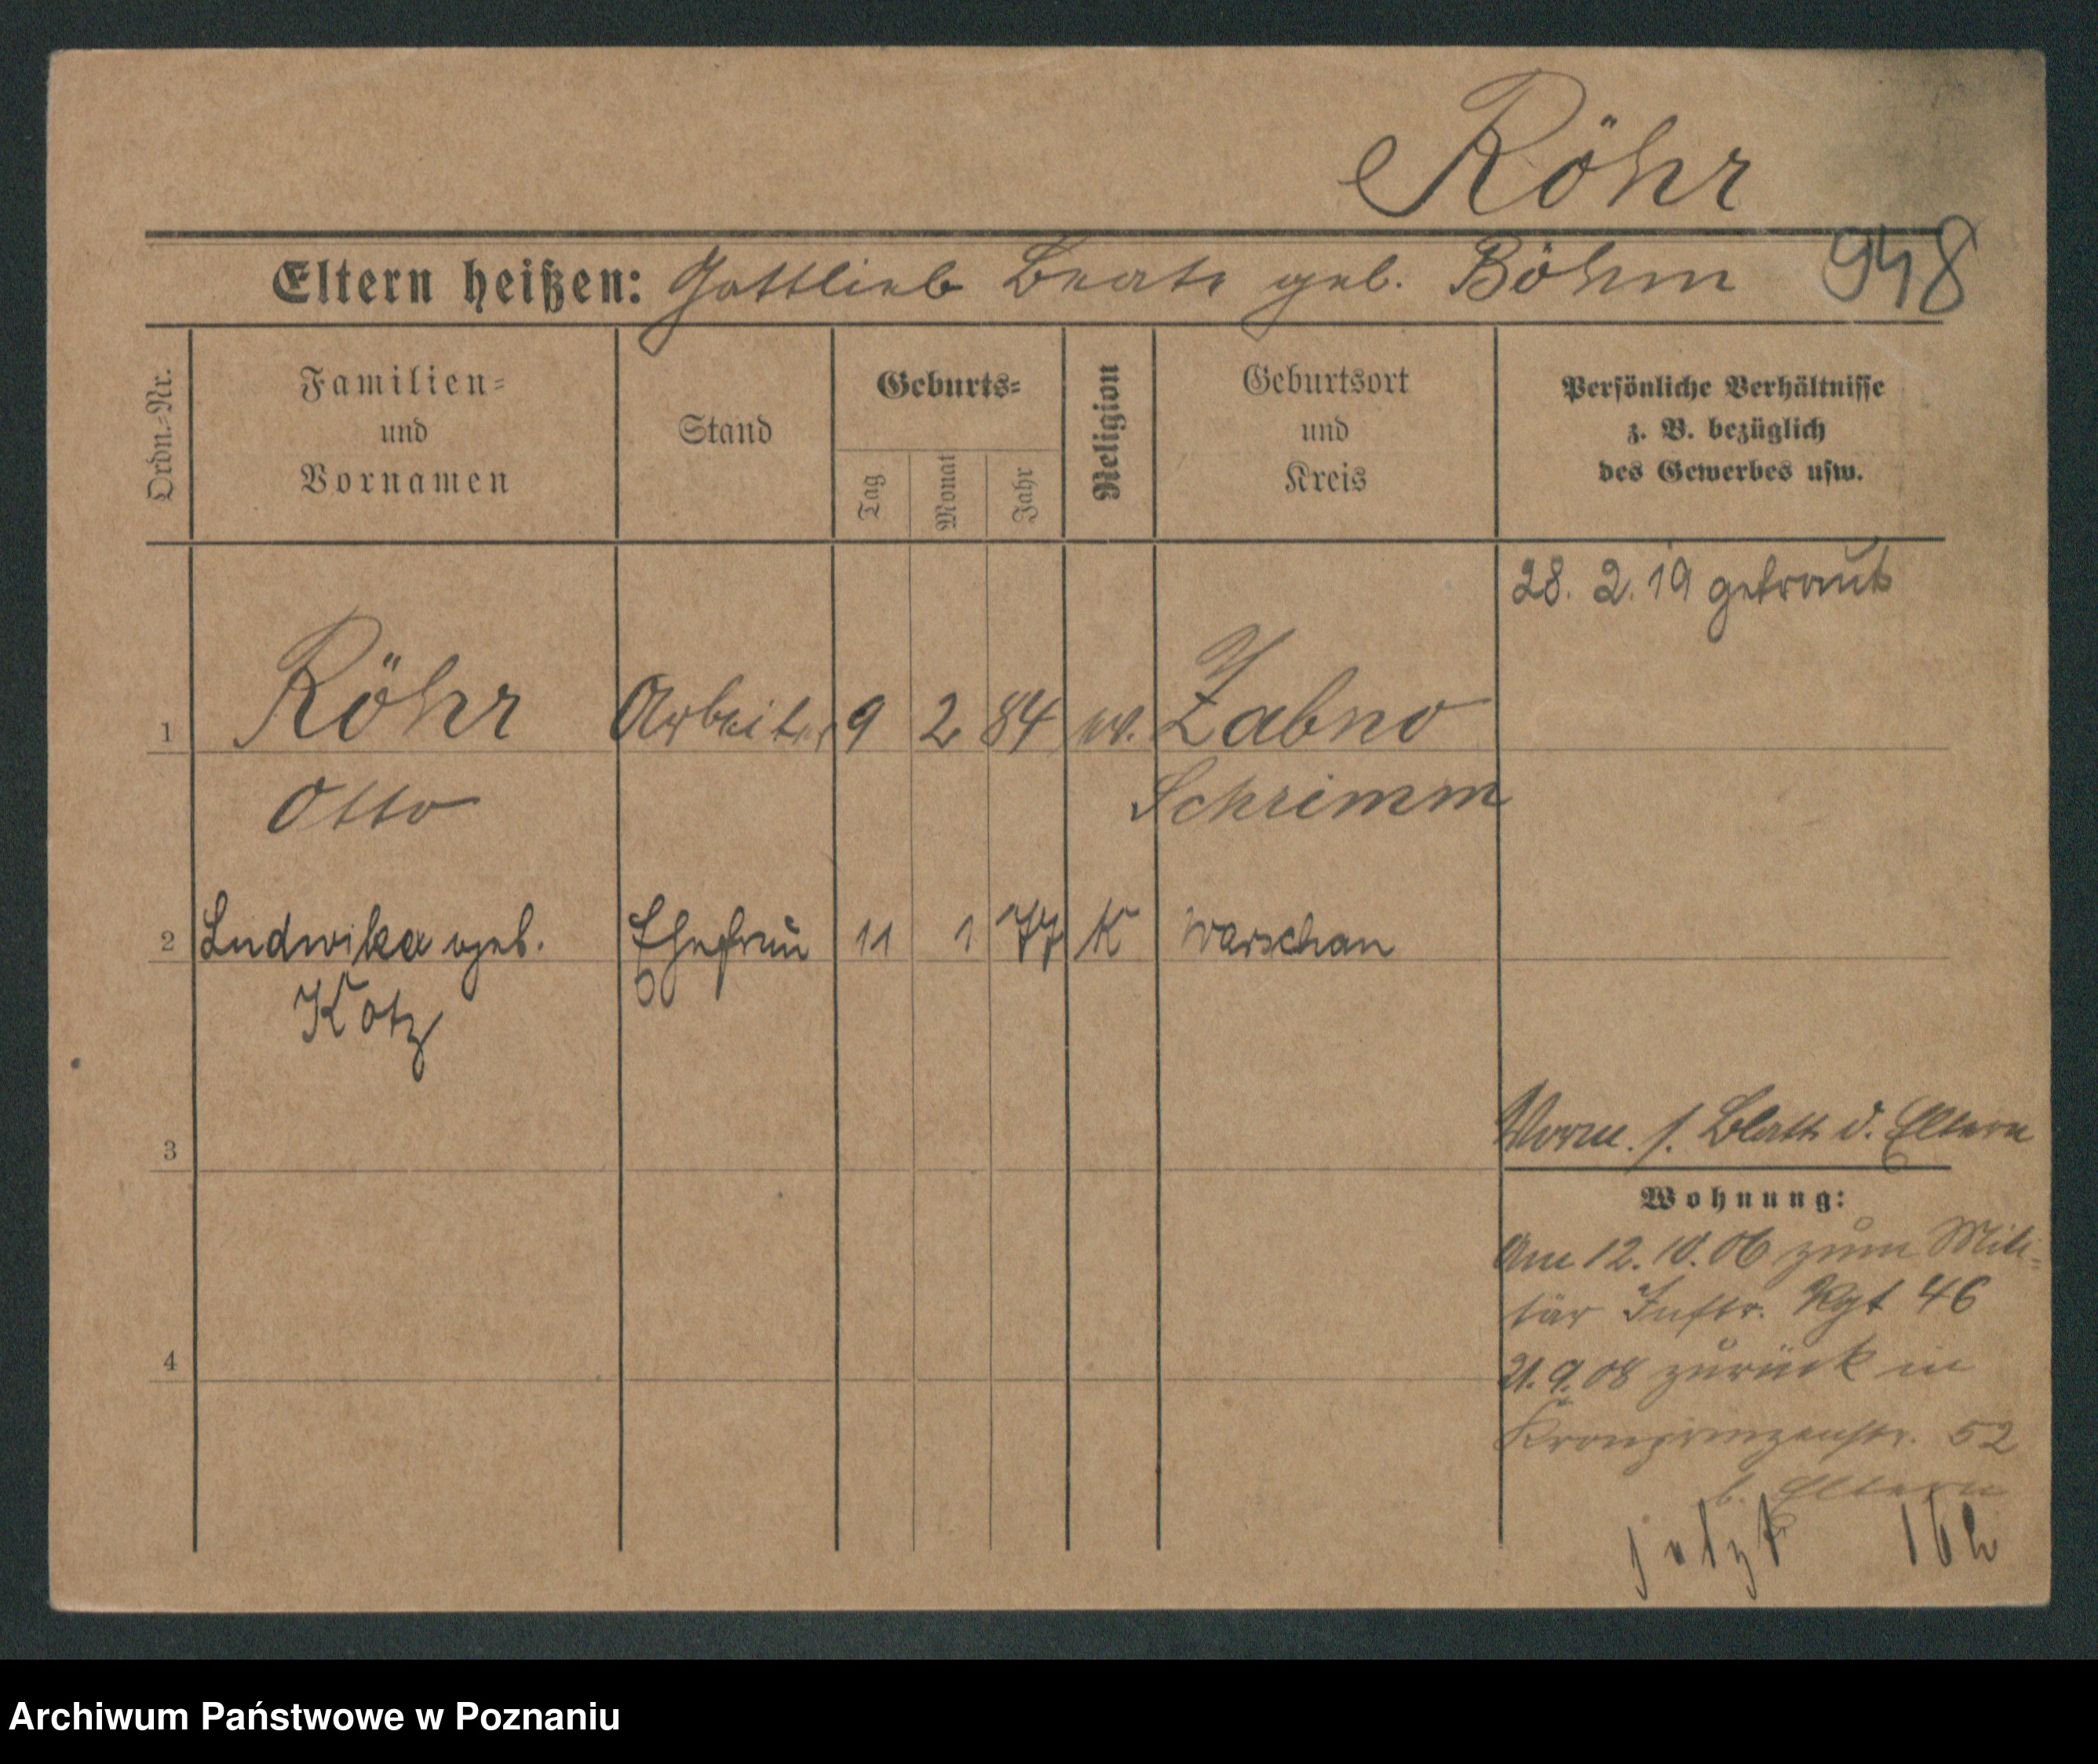 Röhr
948
Eltern heißen: Gottlieb Beate geb. Böhm
Ordn.=Nr.
Familien=
und
Vornamen
Stand
Geburts=
Tag
Monat
Jahr
Religion
Geburtsort
und
Kreis
Persönliche Verhältnisse
z. B. bezüglich
des Gewerbes usw.
28. 2. 19 getraut
1 Röhr Arbeiter 9 2 84 ev. Zabno
Otto Schrimm
2 Ludwika geb. Ehefrau 11 1 77 K Warschau
Kotz
3
Vorm. s. Blatt d. Eltern
Wohnung:
Am 12. 10. 06 zum Mili-
tär Inftr. Rgt 46
4
21. 9. 08 zurück in
Kronprinzenstr. 52
b. Eltern
jetzt
Archiwum Państwowe w Poznaniu